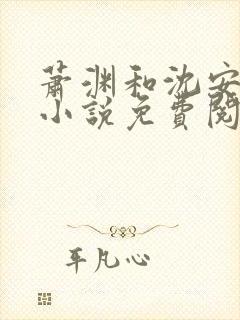 萧渊和沈安
小说免費閱
平凡心